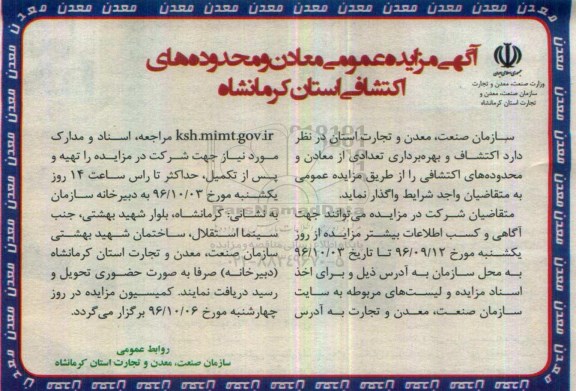 آگهی مزایده عمومی معادن و محدوده‌های
اکتشافی استان کرمانشاه
جمهوری اسلامی ایران
وزارت صنعت، معدن و تجارت
سازمان صنعت، معدن و
تجارت استان کرمانشاه
سازمان صنعت، معدن و تجارت استان در نظر
دارد اکتشاف و بهره‌برداری تعدادی از معادن و
محدوده‌های اکتشافی را از طریق مزایده عمومی
به متقاضیان واجد شرایط واگذار نماید.
متقاضیان شرکت در مزایده می‌توانند جهت
آگاهی و کسب اطلاعات بیشتر مزایده از روز
یکشنبه مورخ ۹۶/۰۹/۱۲ تا تاریخ ۹۶/۱۰/۰۲
به محل سازمان به آدرس ذیل و برای اخذ
اسناد مزایده و لیست‌های مربوطه به سایت
سازمان صنعت، معدن و تجارت به آدرس
ksh.mimt.gov.ir مراجعه، اسناد و مدارک
مورد نیاز جهت شرکت در مزایده را تهیه و
پس از تکمیل، حداکثر تا راس ساعت ۱۴ روز
یکشنبه مورخ ۹۶/۱۰/۰۳ به دبیرخانه سازمان
به نشانی: کرمانشاه، بلوار شهید بهشتی، جنب
سینما استقلال، ساختمان شهید بهشتی
سازمان صنعت، معدن و تجارت استان کرمانشاه
(دبیرخانه) صرفا به صورت حضوری تحویل و
رسید دریافت نمایند. کمیسیون مزایده در روز
چهارشنبه مورخ ۹۶/۱۰/۰۶ برگزار می‌گردد.
روابط عمومی
سازمان صنعت، معدن و تجارت استان کرمانشاه